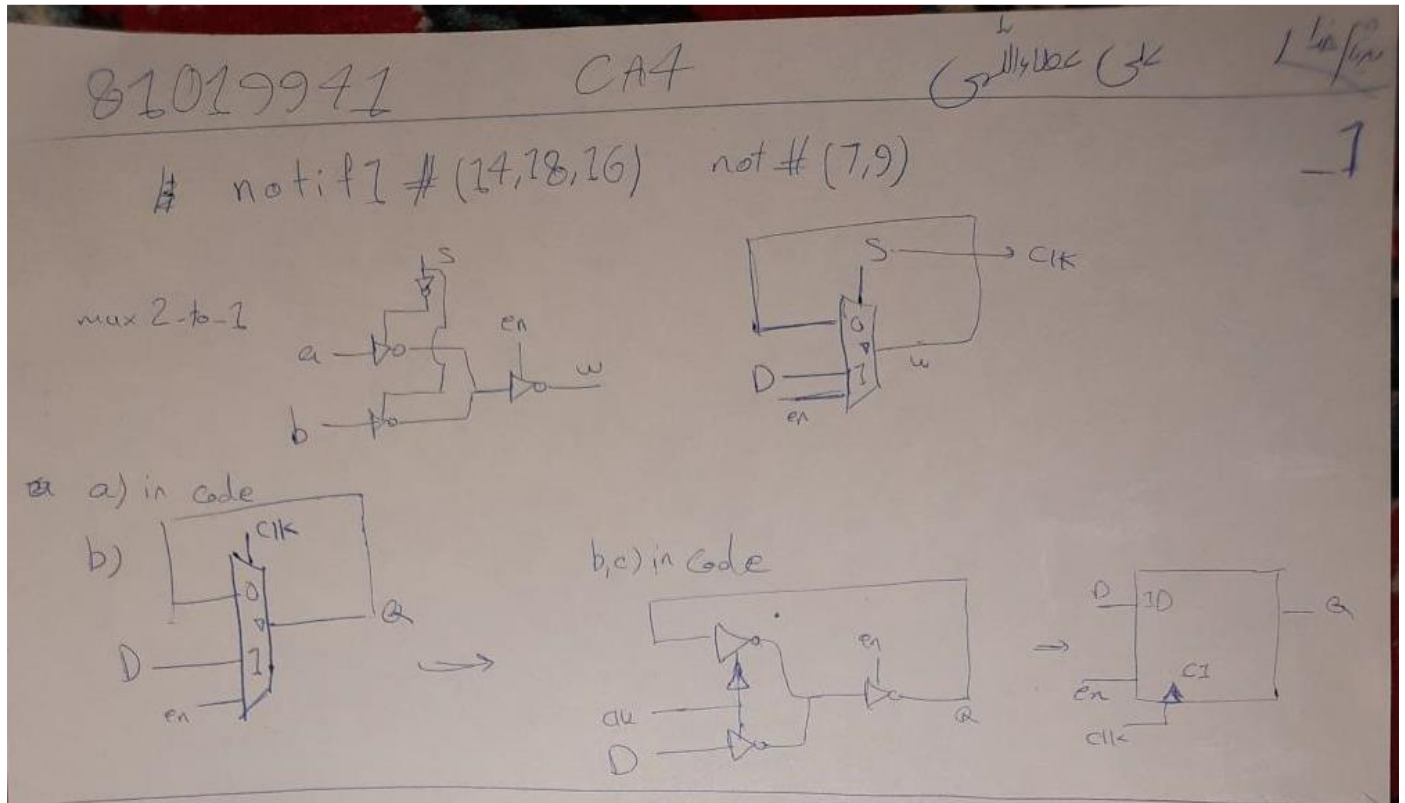 81019941 CA4
_1
notif1 # (14,18,16) not # (7,9)
mux 2-to-1
S
a
b
en
w
S
Clk
0
D
1
w
en
a) in code
b)
Clk
0
D
1
en
Q
b,c) in code
clk
D
en
Q
D 1D Q
en C1
Clk